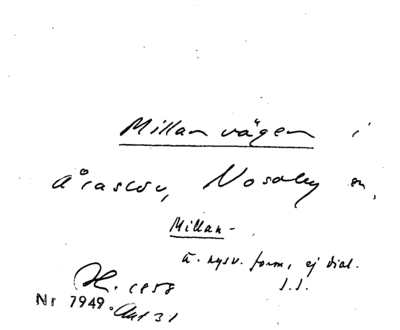 Millanvägen i
Åraslöv, Nosaby sn,
Millan-
ä. nysv. form, ej dial.
1958 S.S.
Nr 7949 Ant 31